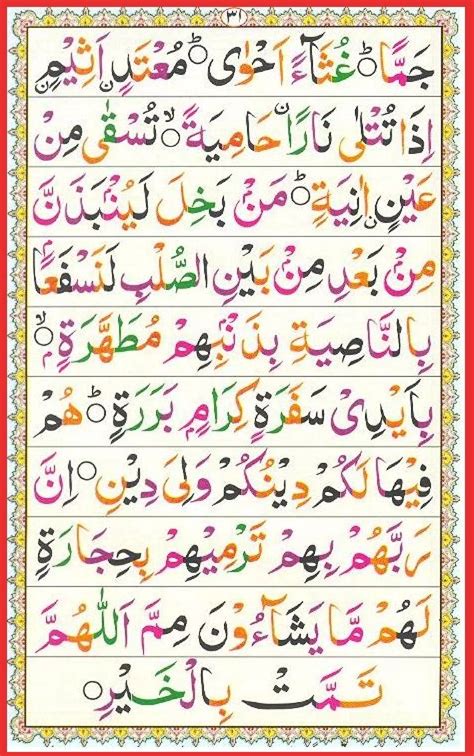 ٣١
جَمًّا ○ؕ غُثَآءً اَحْوٰى ○ؕ مُعْتَدٍ اَثِيْمٍ ○
اِذَا تُتْلٰى نَارًا حَامِيَةً ○ۙ تُسْقٰى مِنْ
عَيْنٍ اٰنِيَةٍ ○ؕ مَنْۢ بَخِلَ لَيُنْۢبَذَنَّ
مِنْۢ بَعْدِ مِنْۢ بَيْنِ الصُّلْبِ لَنَسْفَعًۢا
بِالنَّاصِيَةِ بِذَنْۢبِهِمْ مُطَهَّرَةٍۭ ○ۙ
بِاَيْدِىْ سَفَرَةٍ كِرَامٍۭ بَرَرَةٍ ○ؕ هُمْ
فِيْهَا لَكُمْ دِيْنُكُمْ وَلِىَ دِيْنِ ○ اِنَّ
رَبَّهُمْ بِهِمْ تَرْمِيْهِمْ بِحِجَارَةٍ
لَهُمْ مَا يَشَآءُوْنَ مِمَّ اَللّٰهُمَّ
تَمَّتْ بِالْخَيْرِ ○